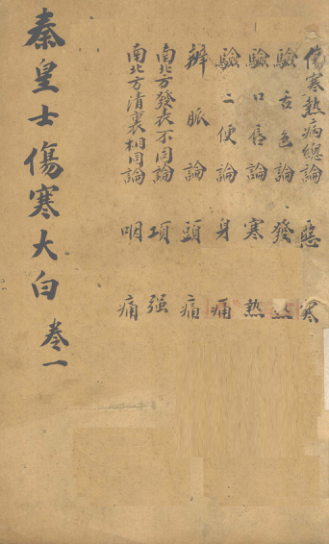 傷寒熱病總論　惡寒
驗舌色論　發熱
驗口唇論　寒熱
驗二便論　身痛
辨脈論　頭痛
南北方發表不同論　項强
南北方清裏相同論　咽痛
秦皇士傷寒大白　卷一